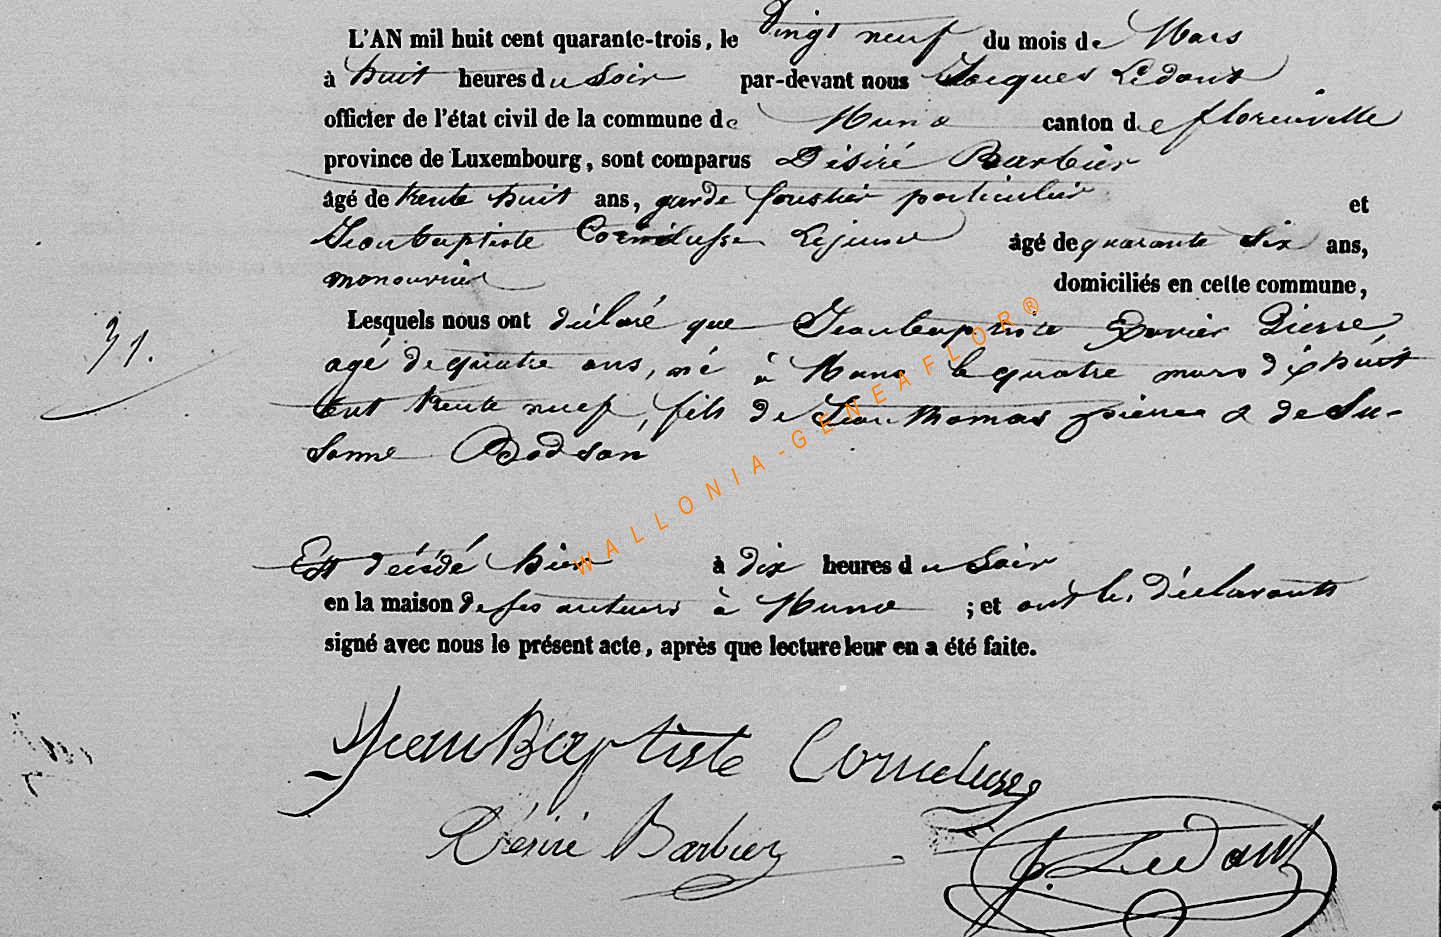 L'AN mil huit cent quarante-trois, le vingt neuf du mois de Mars
à huit heures du Soir par-devant nous Jacques Ledant
officier de l'état civil de la commune de Muno canton de florenville
province de Luxembourg, sont comparus Désiré Barbier
âgé de trente huit ans, garde forestier particulier et
Jean baptiste Lejeune âgé de quarante Six ans,
manouvrier domiciliés en cette commune,
Lesquels nous ont déclaré que Jean baptiste Xavier Pierre
agé de quatre ans, né à Muno le quatre mars dix huit
Cent trente neuf, fils de Jean thomas pierre & de Su-
sanne Dodson
31.
Est décédé hier à dix heures du Soir
en la maison de ses auteurs à Muno ; et ont les déclarants
signé avec nous le présent acte, après que lecture leur en a été faite.
Jean Baptiste
Désiré Barbier
J. Ledant
WALLONIA-GENEAFLOR®